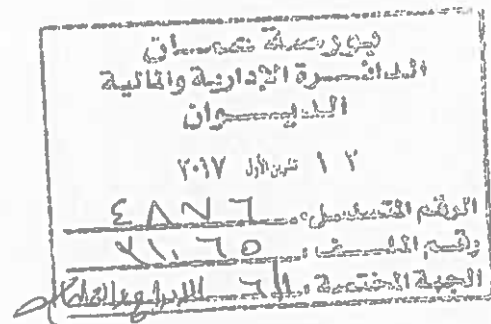 بورصة عمان
الدائرة الإدارية والمالية
الديوان
١٢ تشرين الأول ٢٠١٧
الرقم المتسلسل: ٤٨٧٦
رقم الملف:
الجهة المختصة: